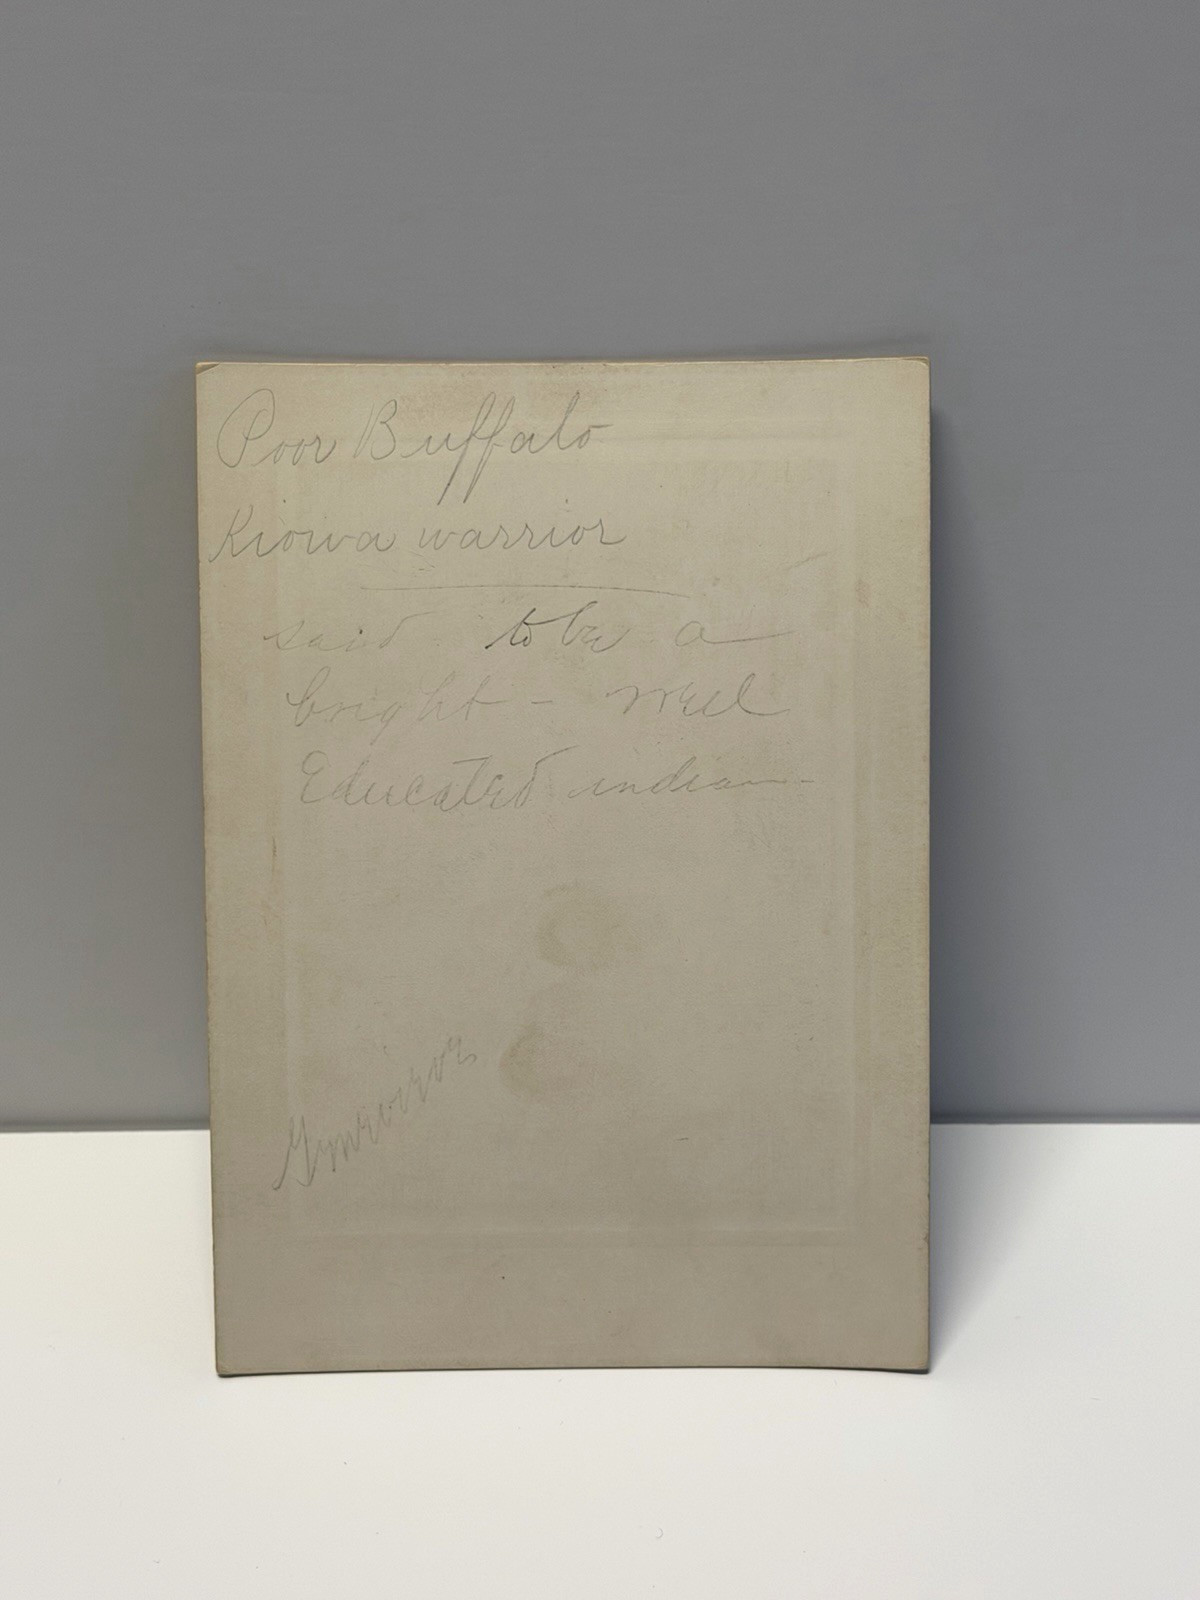 Poor Buffalo
Kiowa warrior
said to be a
bright - well
Educated indian